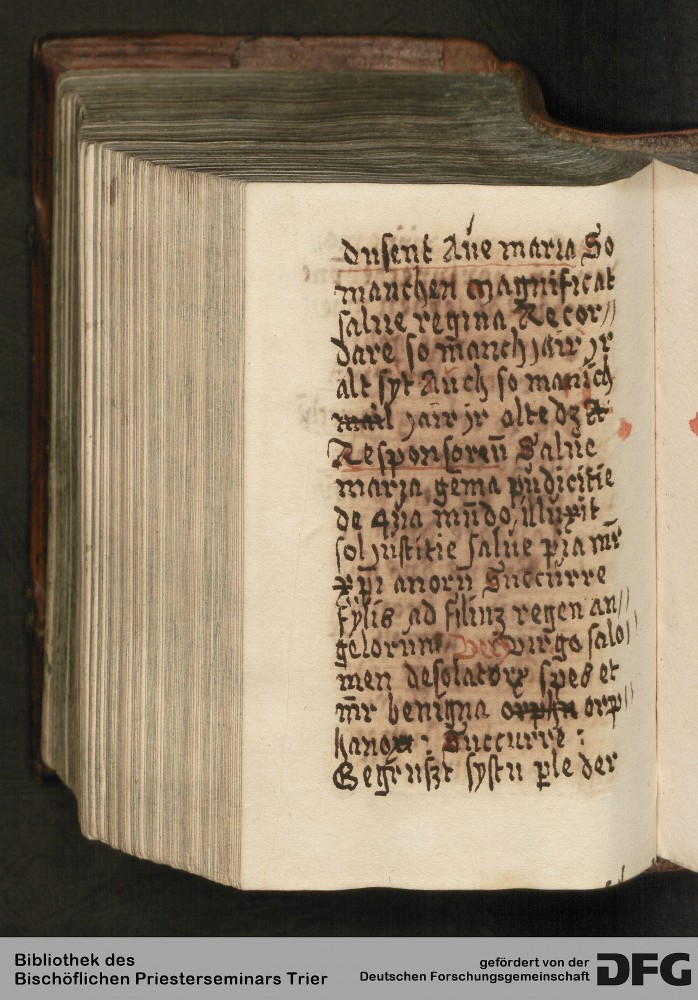 dusent Aue maria So
manchen magnificat
salue regina Recor//
dare so manch jair jr
alt syt Auch so manich
mail jair jr alt
Responsoreū Salue
maria gēma pudicitie
de qua mūdo illuxit
sol justitie salue pia mr̄
xpi anorū Succurre
fylis ad filiuz regen an//
gelorum Ver virgo salo//
men desolatorꝝ spes et
mr̄ benigna orp//
hanoꝝ : Succurre :
Gegruszt systu ꝑle der
Bibliothek des
Bischöflichen Priesterseminars Trier
gefördert von der
Deutschen Forschungsgemeinschaft DFG